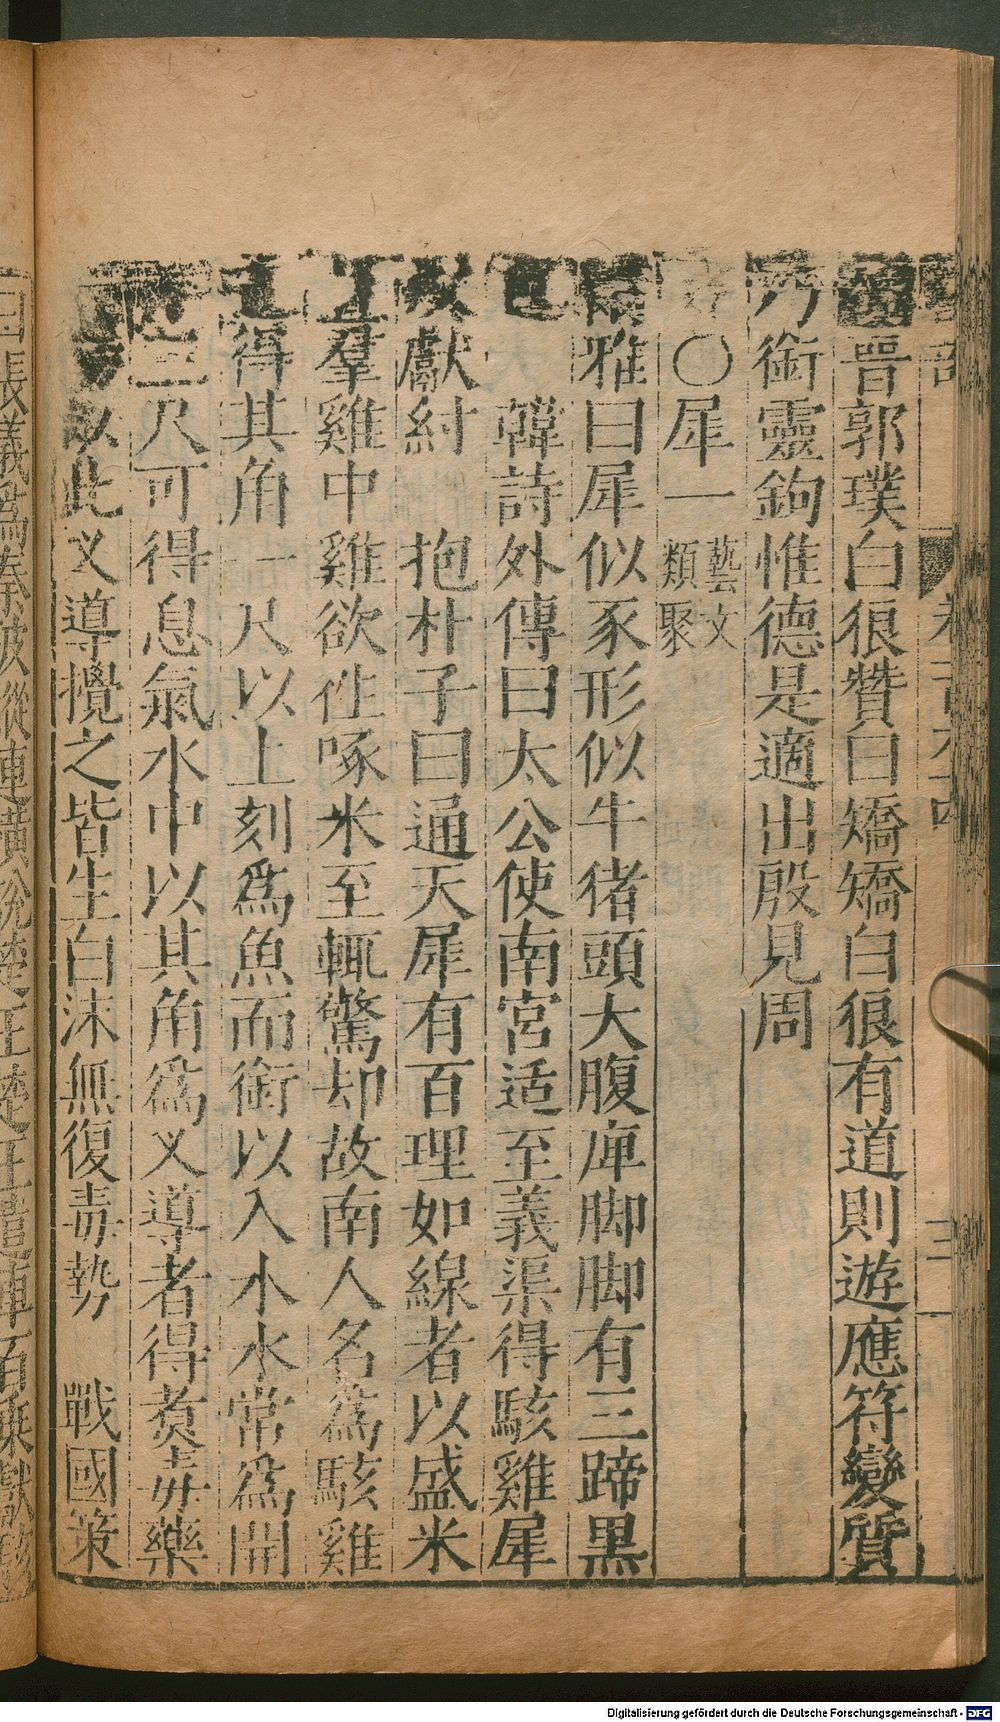 晉郭璞白狼贊曰矯矯白狼有道則遊應符變質
乃銜靈鉤惟德是適出殷見周
〇犀一 藝文類聚
雅曰犀似豕形似牛猪頭大腹庳脚脚有三蹄黑
韓詩外傳曰太公使南宮适至義渠得駭雞犀
以獻紂 抱朴子曰通天犀有百理如線者以盛米
羣雞中雞欲往啄米至輒驚却故南人名為駭雞
得其角一尺以上刻為魚而銜以入水水常為開
三尺可得息氣水中以其角為叉導者得煑毒藥
以此叉導攪之皆生白沫無復毒勢 戰國策
曰張儀為秦破從連橫說楚王楚王遣車百乘獻
Digitalisierung gefördert durch die Deutsche Forschungsgemeinschaft - DFG